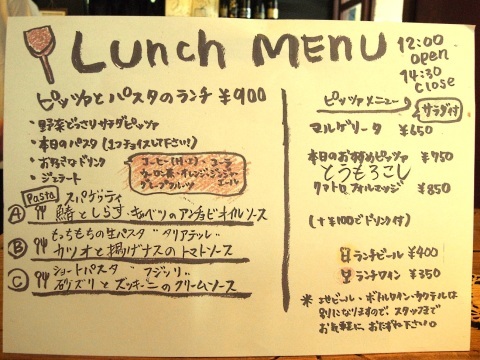 Lunch MENU
12:00
open
14:30
CLOSE
ピッツァとパスタのランチ ¥900
・野菜どっさりサラダピッツァ
・本日のパスタ (1つチョイスして下さい!)
・お好きなドリンク
・ジェラート
コーヒー(H・I)・コーラ
ウーロン茶・オレンジ・ジンジャー
グレープフルーツ エール
Pasta スパゲティ
A 鯖としらす・キャベツのアンチョビオイルソース
もっちもちの生パスタ "タリアテッレ"
B カツオと揚げナスのトマトソース
ショートパスタ "フジッリ"
C 砂ズリとズッキーニのクリームソース
ピッツァメニュー
サラダ付
マルゲリータ ¥650
本日のおすすめピッツァ ¥750
とうもろこし
クアトロフォルマッジ ¥850
(+¥100でドリンク付)
ランチビール ¥400
ランチワイン ¥350
※地ビール・ボトルワイン・カクテルは
別になりますので、スタッフまで
お気軽に、おたずね下さい。